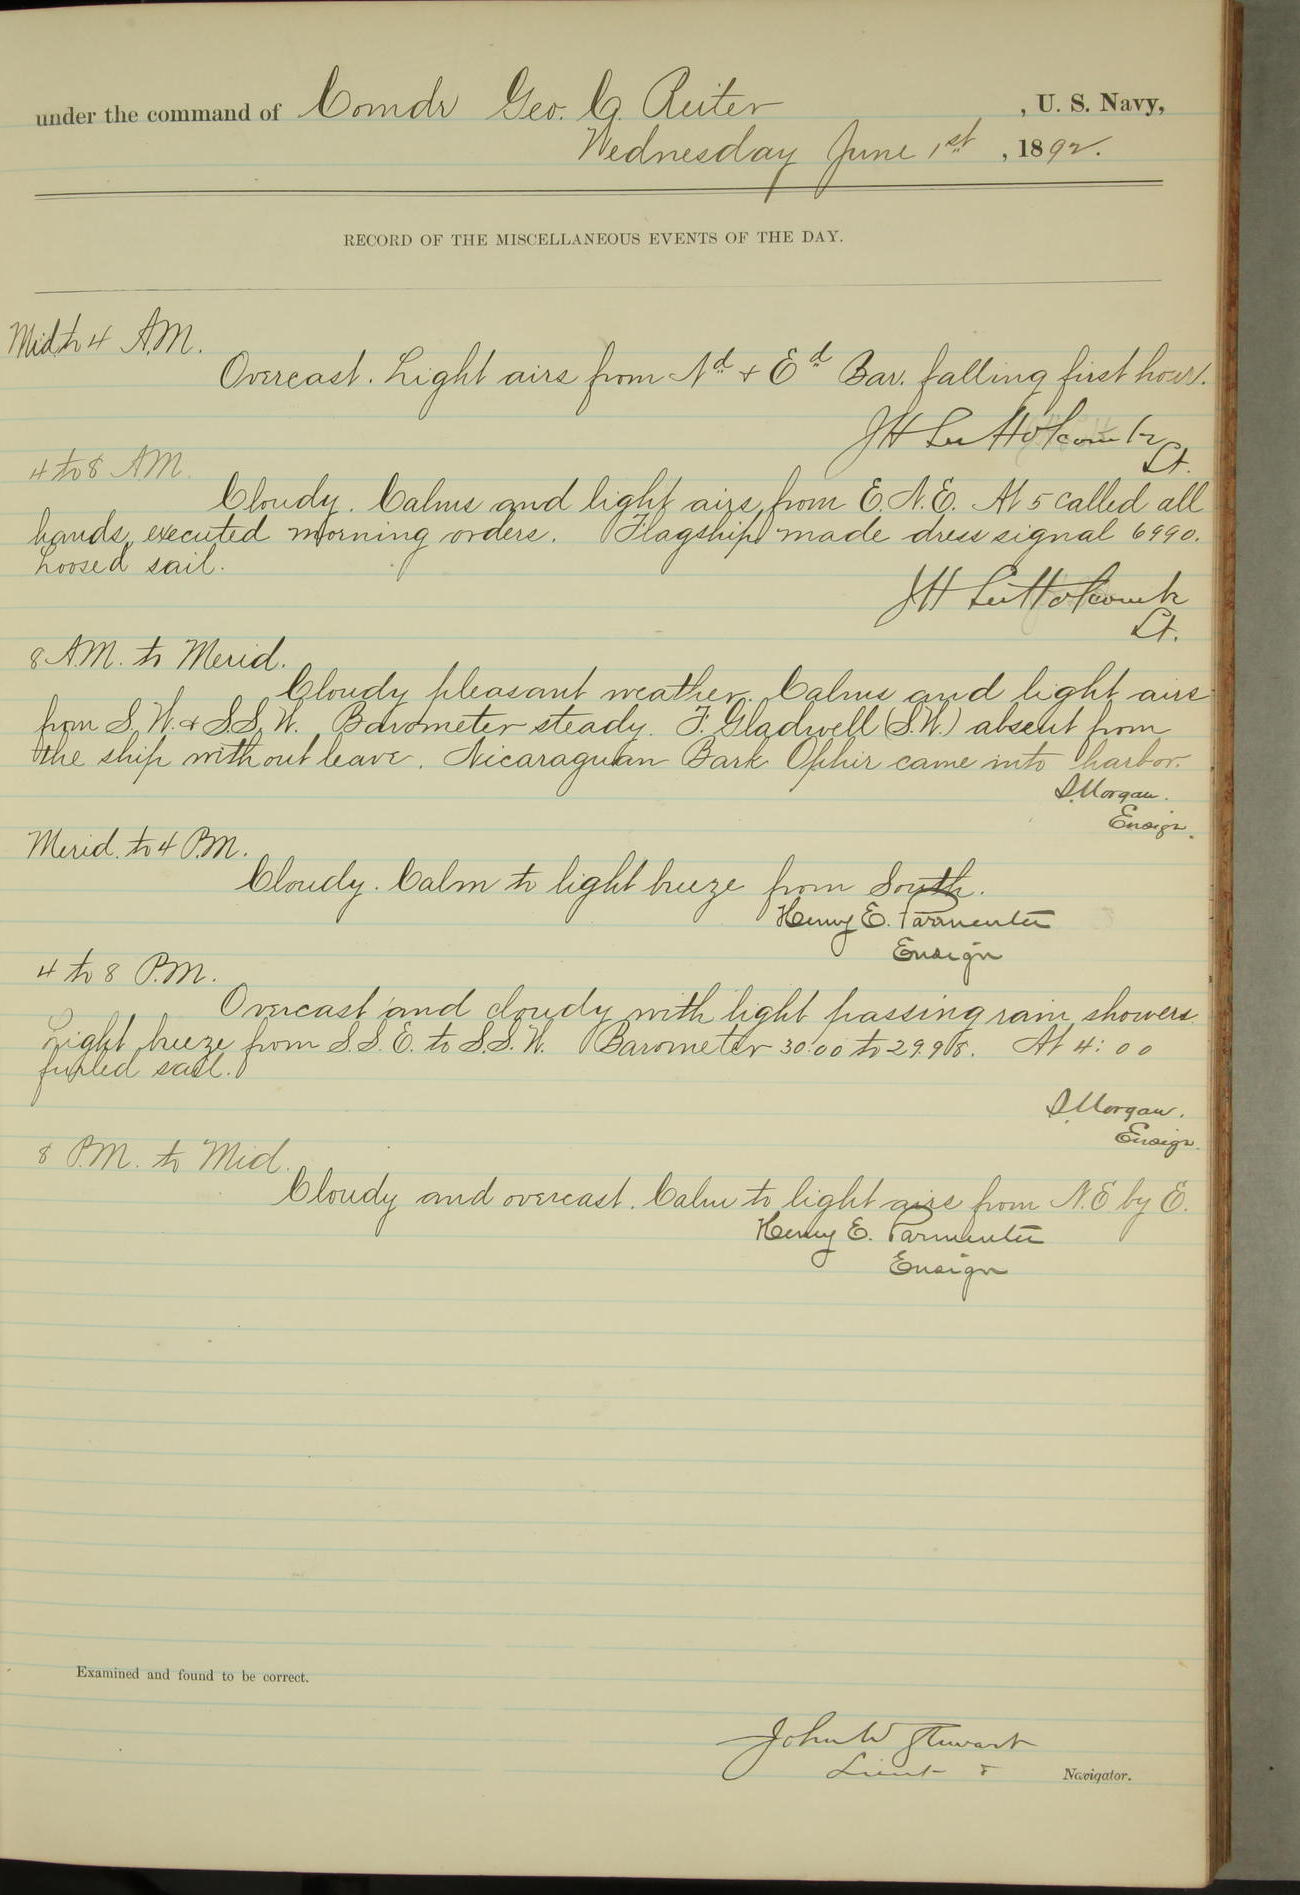 under the command of Comdr Geo. C. Reiter , U. S. Navy,
Wednesday June 1st , 1892.
RECORD OF THE MISCELLANEOUS EVENTS OF THE DAY.
Mid. to 4 A.M.
Overcast. Light airs from Nd & Ed Bar. falling first hour.
JH Lee Holcomb
Lt.
4 to 8 A.M.
Cloudy. Calms and light airs from E.N.E. At 5 called all
hands, executed morning orders. Flagship made dress signal 6990.
Loosed sail.
JH Lee Holcomb
Lt.
8 A.M. to Merid.
Cloudy pleasant weather. Calms and light airs
from S.W. & S.S.W. Barometer steady. F. Gladwell (S.W.) absent from
the ship without leave. Nicaraguan Bark Ophir came into harbor.
D. Morgan.
Ensign.
Merid. to 4 P.M.
Cloudy. Calm to light breeze from South.
Henry E. Parmenter
Ensign
4 to 8 P.M.
Overcast and cloudy with light passing rain showers.
Light breeze from S.S.E. to S.S.W. Barometer 30:00 to 29.98. At 4:00
furled sail.
D. Morgan.
Ensign.
8 P.M. to Mid.
Cloudy and overcast. Calm to light airs from N.E. by E.
Henry E. Parmenter
Ensign
Examined and found to be correct.
John W Stewart
Lieut & Navigator.